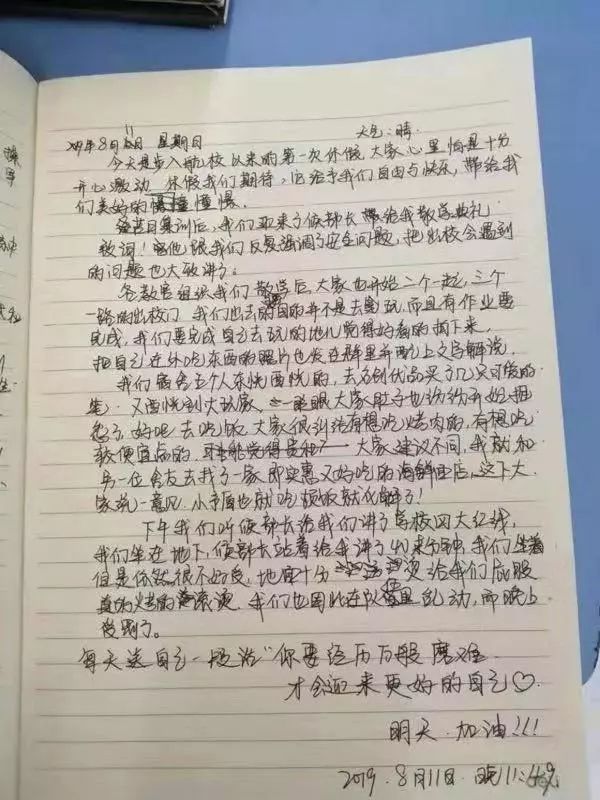 2019年8月11日 星期日 天气:晴
今天是步入航校以来的第一次休假,大家心里怕是十分
开心激动,休假我们期待,它给予我们自由与快乐,带给我
们美好的憧憬。
集训后,我们迎来了侯部长带给我
致词!他跟我们反复强调了安全问题,把出校会遇到
的问题也大致讲了。
各教官组织我们散学后,大家也开始二个一起,三个
一路的出校门 我们出去的目的并不是去乱玩,而且有作业要
完成,我们要完成自己去玩的地儿觉得好看的拍下来,
把自己在外吃东西的照片也发在群里并配上文字解说,
我们宿舍五个人东恍西恍的,去名创优品买了几只可爱的
笔,又西恍到大玩家,一眼大家肚子也纷纷开始提
怨了,好吧 去吃饭,大家很纠结有想吃烤肉的,有想吃
较便宜点的, 大家建议不同,我就和
另一位舍友去找了一家即实惠又好吃的海鲜 店,这下大
家统一意见,小矛盾也就吃顿饭就化解了!
下午我们听侯部长给我们讲了 校四大红线,
我们坐在地下,侯部长站着给我讲了 来分钟,我们坐着
但是依然很不好受,地面十分 烫给我们屁股
真的烤的滚烫,我们也因此在队里乱动,而晚上
受罚了。
每天送自己一段话"你要经历万般磨难
才会迎来更好的自己♡.
明天.加油!!!
2019.8月11日.晚11: